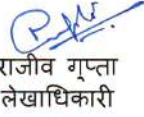 राजीव गुप्ता
लेखाधिकारी